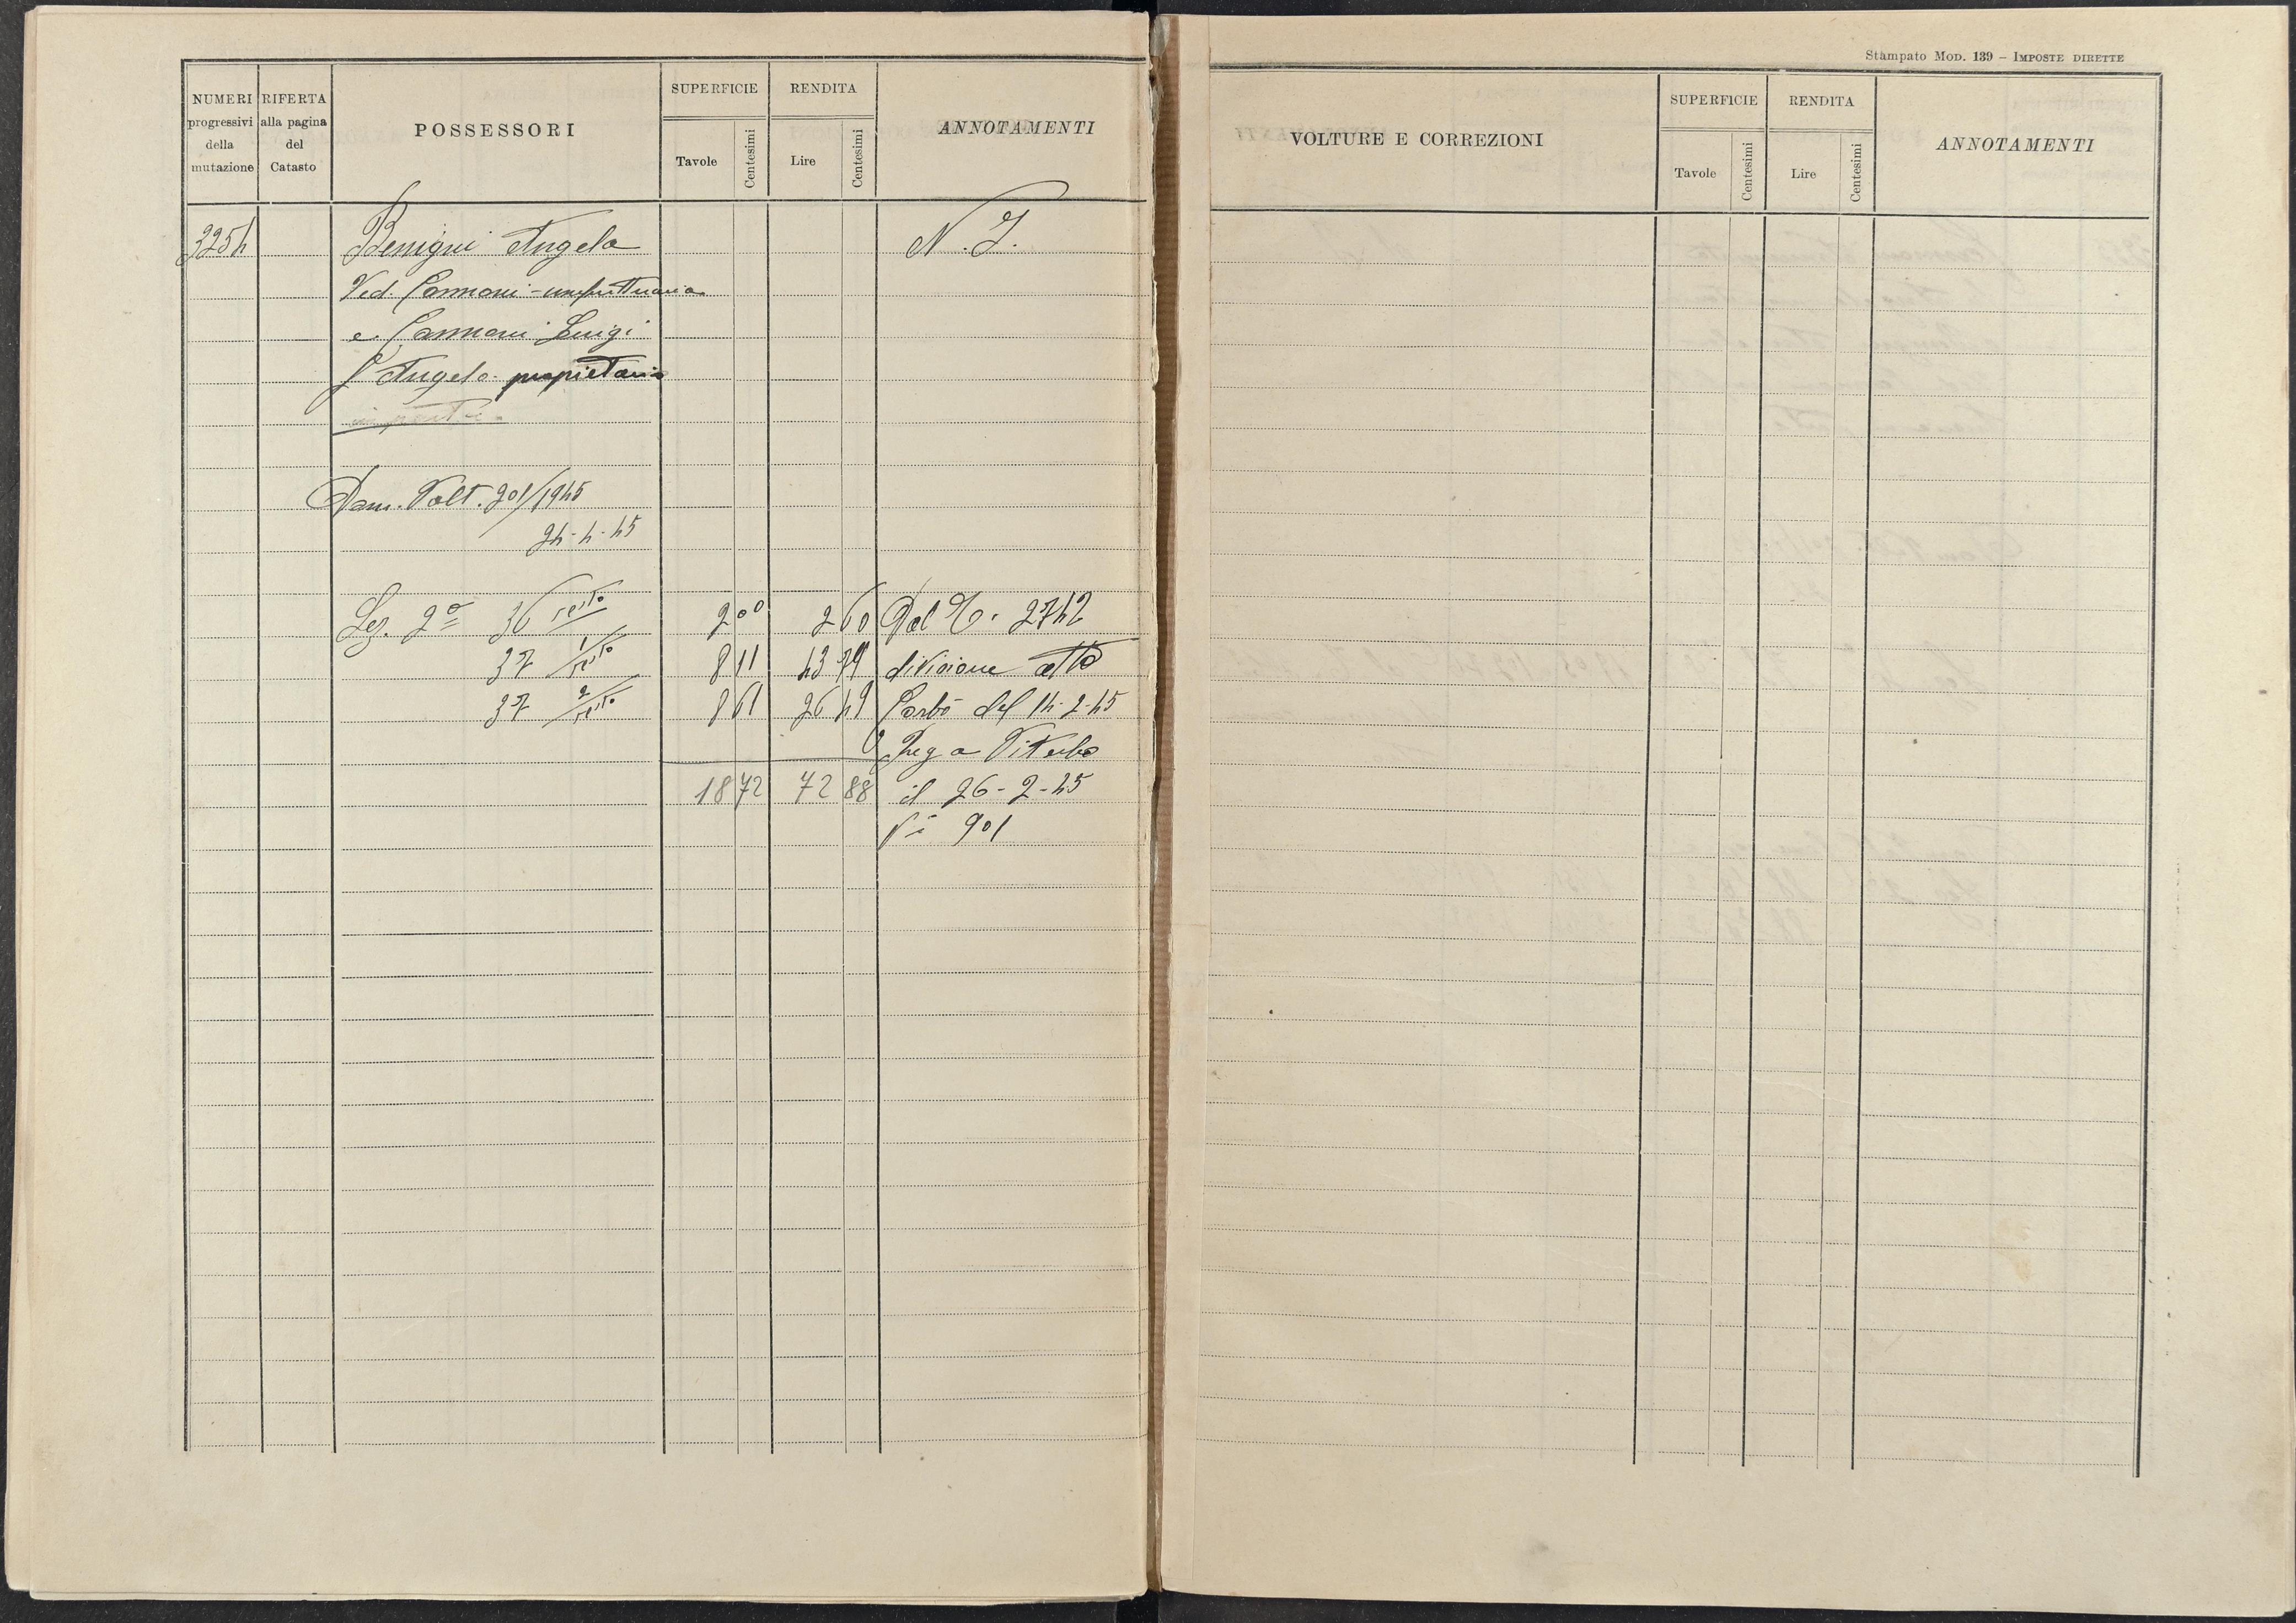 NUMERI progressivi della mutazione
RIFERTA alla pagina del Catasto
POSSESSORI
SUPERFICIE
Tavole
Centesimi
RENDITA
Lire
Centesimi
ANNOTAMENTI
3254
Benigni Angela
N. I.
Ved. Cannoni - usufruttuaria
e Cannoni Luigi
f Angelo proprietario
in parte.
Dom. Volt. 201/1945
24-4-45
Sez. 2ª 36 resto 2 00 2 60 Dal C. 2742
37 1/resto 8 11 43 79 divisione atto
37 2/resto 8 61 26 49 del 14-2-45
Reg a Viterbo
18 72 72 88 il 26-2-45
N° 901
Stampato Mod. 139 – Imposte dirette
VOLTURE E CORREZIONI
SUPERFICIE
Tavole
Centesimi
RENDITA
Lire
Centesimi
ANNOTAMENTI